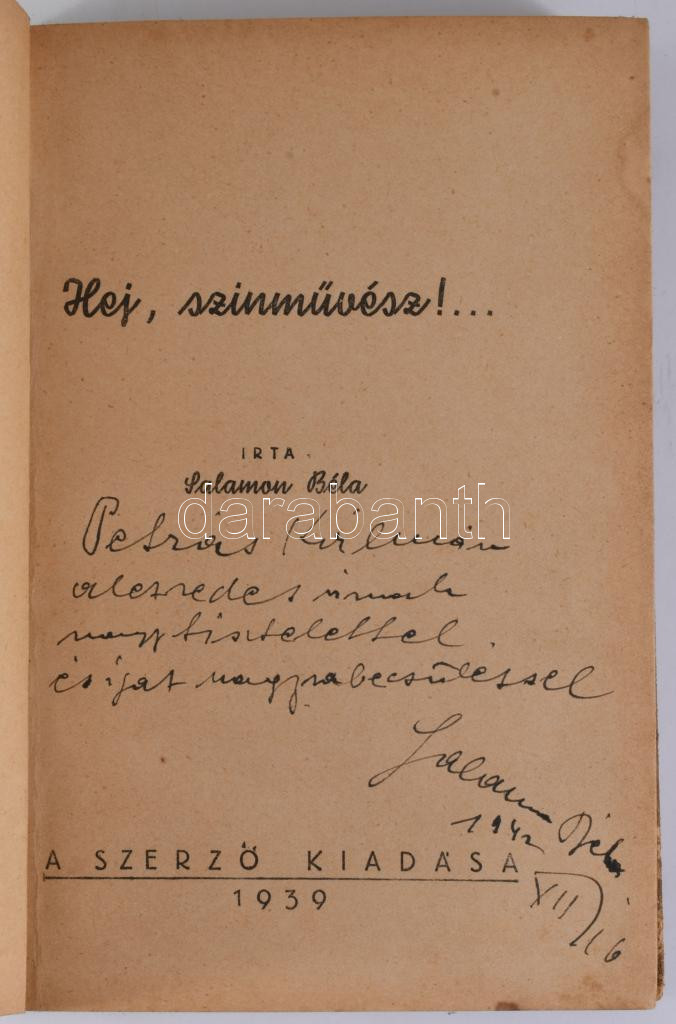 Hej, szinművész!...
IRTA
Salamon Béla
darabanth
Petrás Kálmán
alezredes úrnak
nagy tisztelettel
és igaz nagyrabecsüléssel
Salamon Béla
1942
XII/16
A SZERZŐ KIADÁSA
1939